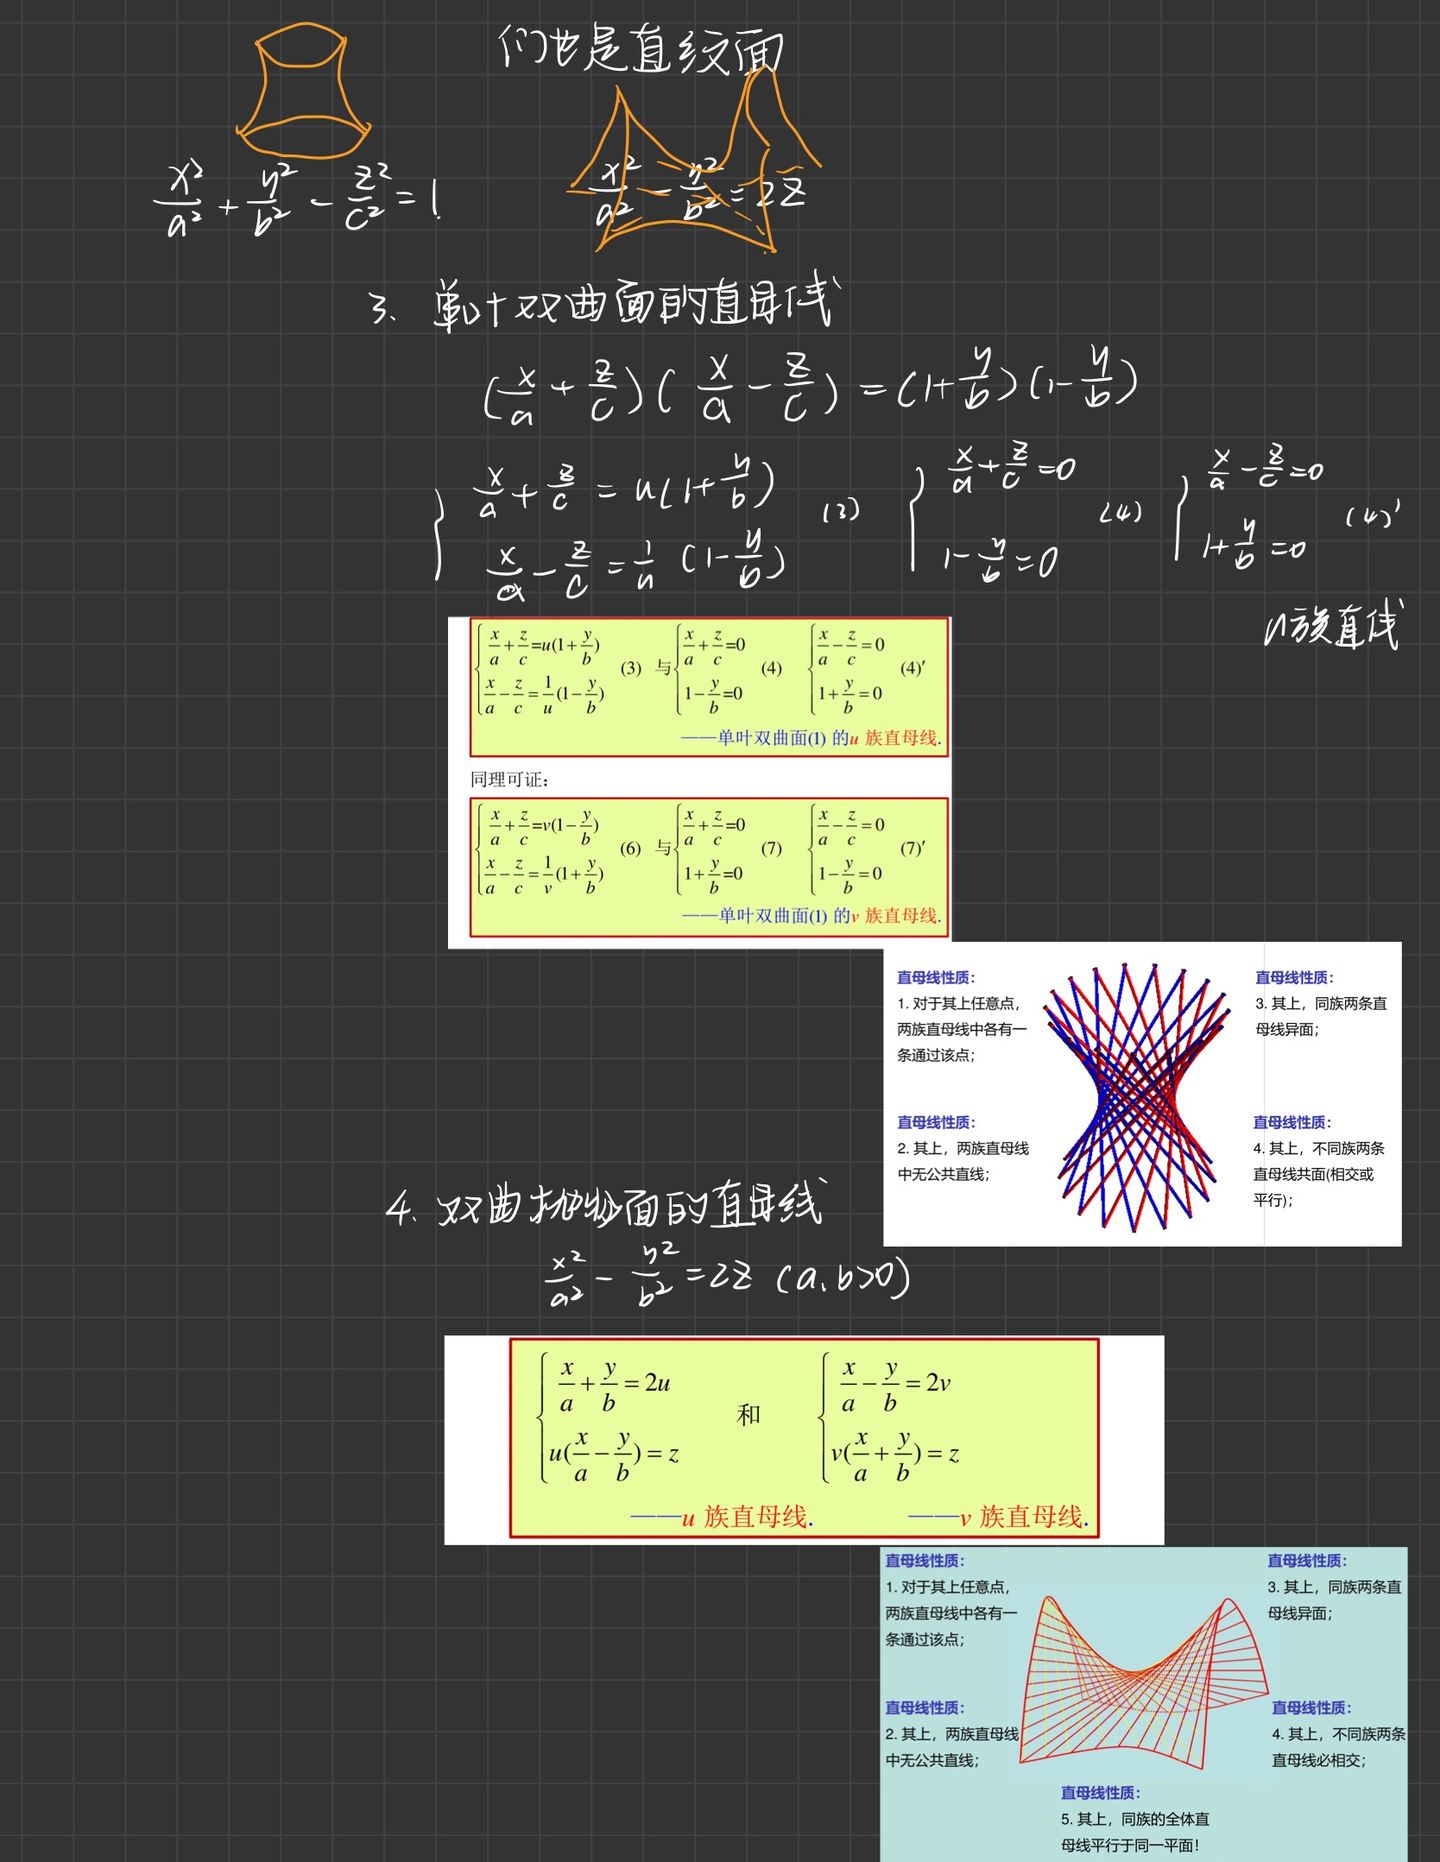 们也是直纹面
x²/a² + y²/b² - z²/c² = 1
x²/a² - y²/b² = 2z
3、单叶双曲面的直母线
(x/a + z/c)(x/a - z/c) = (1 + y/b)(1 - y/b)
{ x/a + z/c = u(1 + y/b)
x/a - z/c = 1/u (1 - y/b) (3)
{ x/a + z/c = 0
1 - y/b = 0 (4)
{ x/a - z/c = 0
1 + y/b = 0 (4)'
u族直线
{ x/a + z/c = u(1 + y/b)
x/a - z/c = 1/u (1 - y/b) (3) 与 { x/a + z/c = 0
1 - y/b = 0 (4) { x/a - z/c = 0
1 + y/b = 0 (4)′
——单叶双曲面(1) 的u 族直母线.
同理可证：
{ x/a + z/c = v(1 - y/b)
x/a - z/c = 1/v (1 + y/b) (6) 与 { x/a + z/c = 0
1 + y/b = 0 (7) { x/a - z/c = 0
1 - y/b = 0 (7)′
——单叶双曲面(1) 的v 族直母线.
直母线性质：
1. 对于其上任意点，
两族直母线中各有一
条通过该点；
直母线性质：
2. 其上，两族直母线
中无公共直线；
直母线性质：
3. 其上，同族两条直
母线异面；
直母线性质：
4. 其上，不同族两条
直母线共面(相交或
平行)；
4、双曲抛物面的直母线
x²/a² - y²/b² = 2z (a, b>0)
{ x/a + y/b = 2u
u(x/a - y/b) = z
和
{ x/a - y/b = 2v
v(x/a + y/b) = z
——u 族直母线. ——v 族直母线.
直母线性质：
1. 对于其上任意点，
两族直母线中各有一
条通过该点；
直母线性质：
2. 其上，两族直母线
中无公共直线；
直母线性质：
3. 其上，同族两条直
母线异面；
直母线性质：
4. 其上，不同族两条
直母线必相交；
直母线性质：
5. 其上，同族的全体直
母线平行于同一平面！